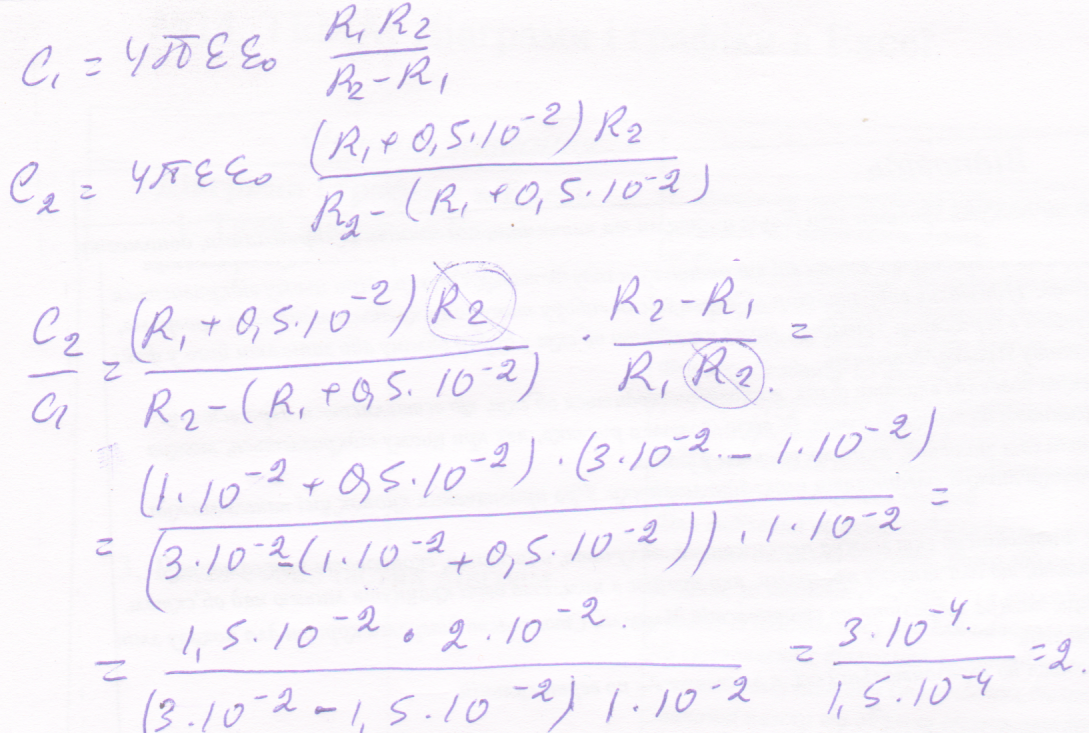 C₁ = 4πεε₀ R₁R₂ / (R₂ − R₁)
C₂ = 4πεε₀ (R₁ + 0,5·10⁻²) R₂ / (R₂ − (R₁ + 0,5·10⁻²))
C₂ / C₁ = (R₁ + 0,5·10⁻²) R₂ / (R₂ − (R₁ + 0,5·10⁻²)) · (R₂ − R₁) / (R₁ R₂) =
= (1·10⁻² + 0,5·10⁻²)·(3·10⁻² − 1·10⁻²) / ((3·10⁻² − (1·10⁻² + 0,5·10⁻²))·1·10⁻²) =
= 1,5·10⁻² · 2·10⁻² / ((3·10⁻² − 1,5·10⁻²) 1·10⁻²) = 3·10⁻⁴ / 1,5·10⁻⁴ = 2.